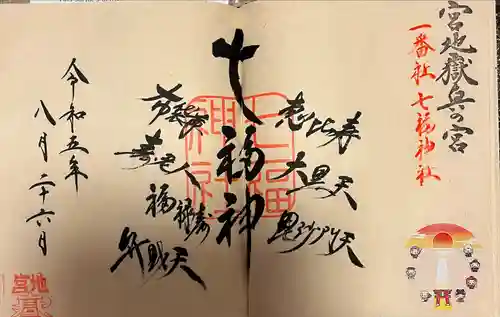 宮地嶽兵の宮
一番社七福神社
恵比寿
大黒天
毘沙門天
七福神
布袋尊
寿老人
福禄寿
弁財天
令和五年
八月二十六月
七福
神社
宮地